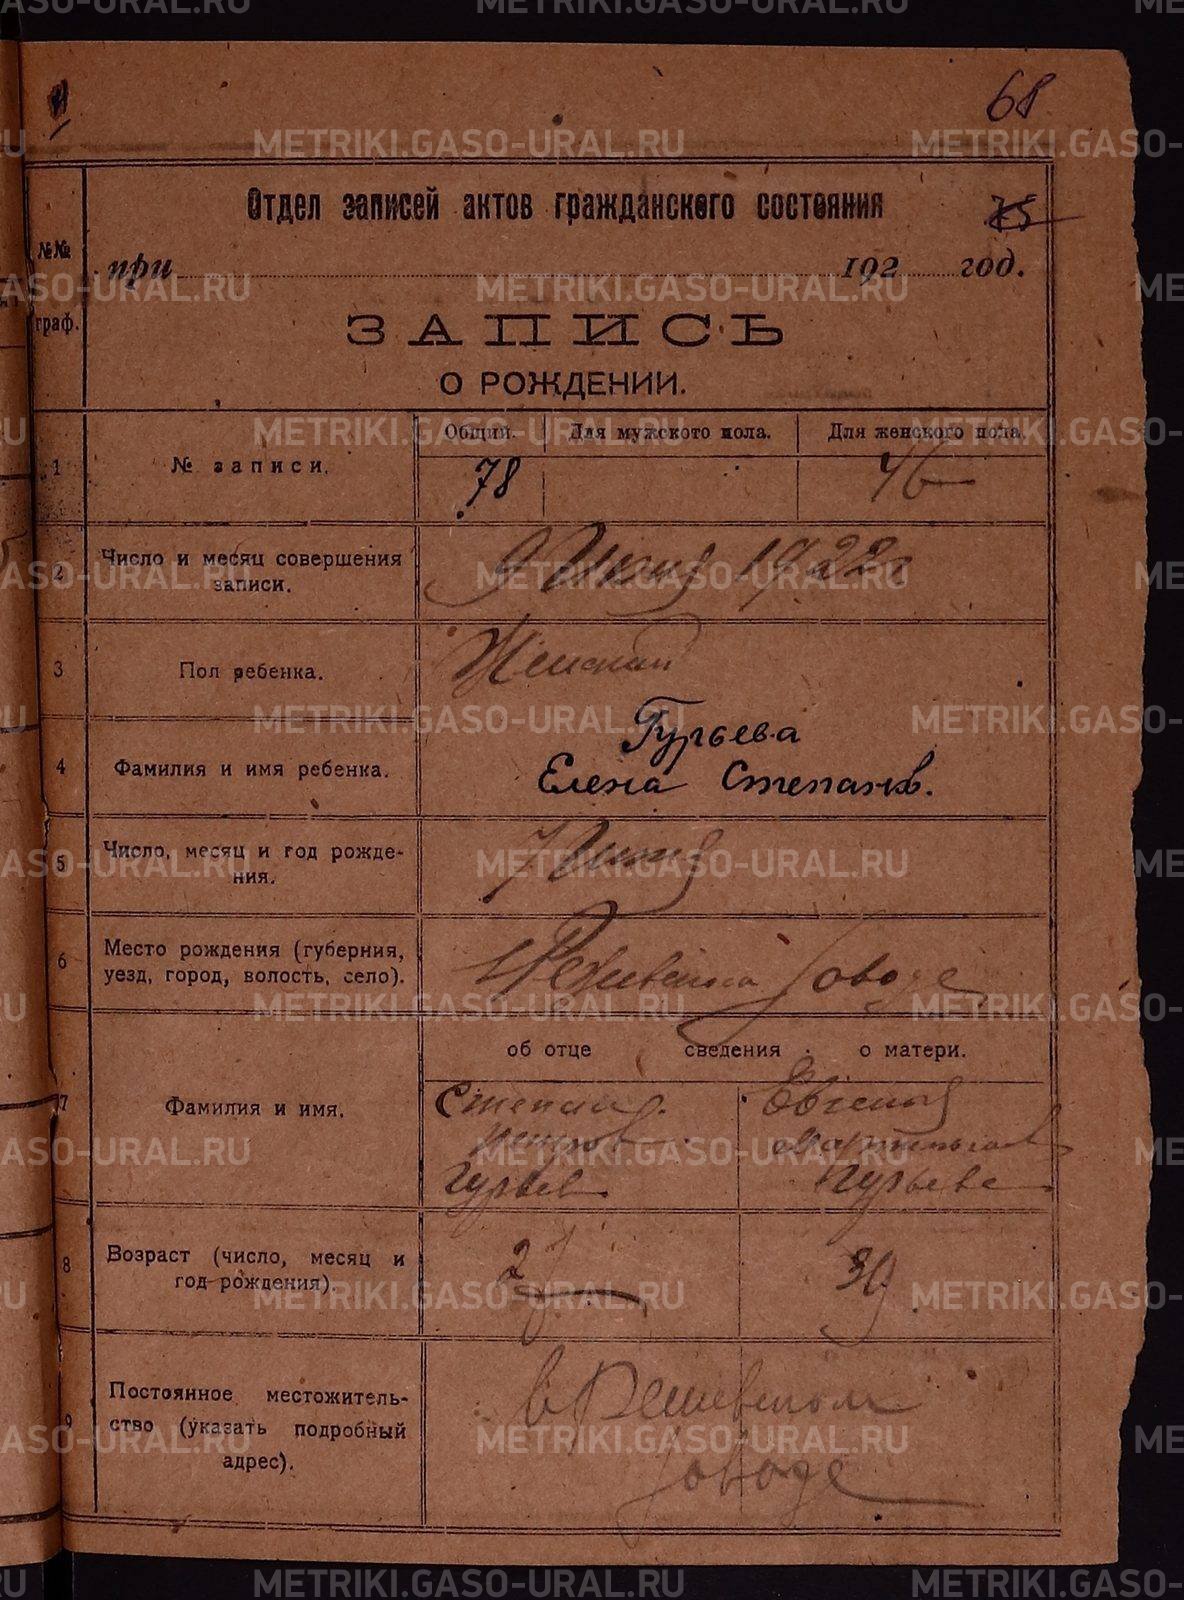 68
Отдел записей актов гражданского состояния
75
при 192 год.
№№ граф.
ЗАПИСЬ
О РОЖДЕНИИ.
Общий. Для мужского пола. Для женского пола.
1 № записи. 78 46
2 Число и месяц совершения
записи.
9 Июня 1922 г
3 Пол ребенка. Женский
4 Фамилия и имя ребенка.
Гурьева
Елена Степанов.
5 Число, месяц и год рожде-
ния.
7 Июня
6 Место рождения (губерния,
уезд, город, волость, село).
заводе
об отце сведения о матери.
7 Фамилия и имя.
Степан
Петров
Гурьев
Евгения
Мартемьянов
Гурьева
8 Возраст (число, месяц и
год рождения).
27 39
9 Постоянное местожитель-
ство (указать подробный
адрес).
в Режевском
заводе
METRIKI.GASO-URAL.RU